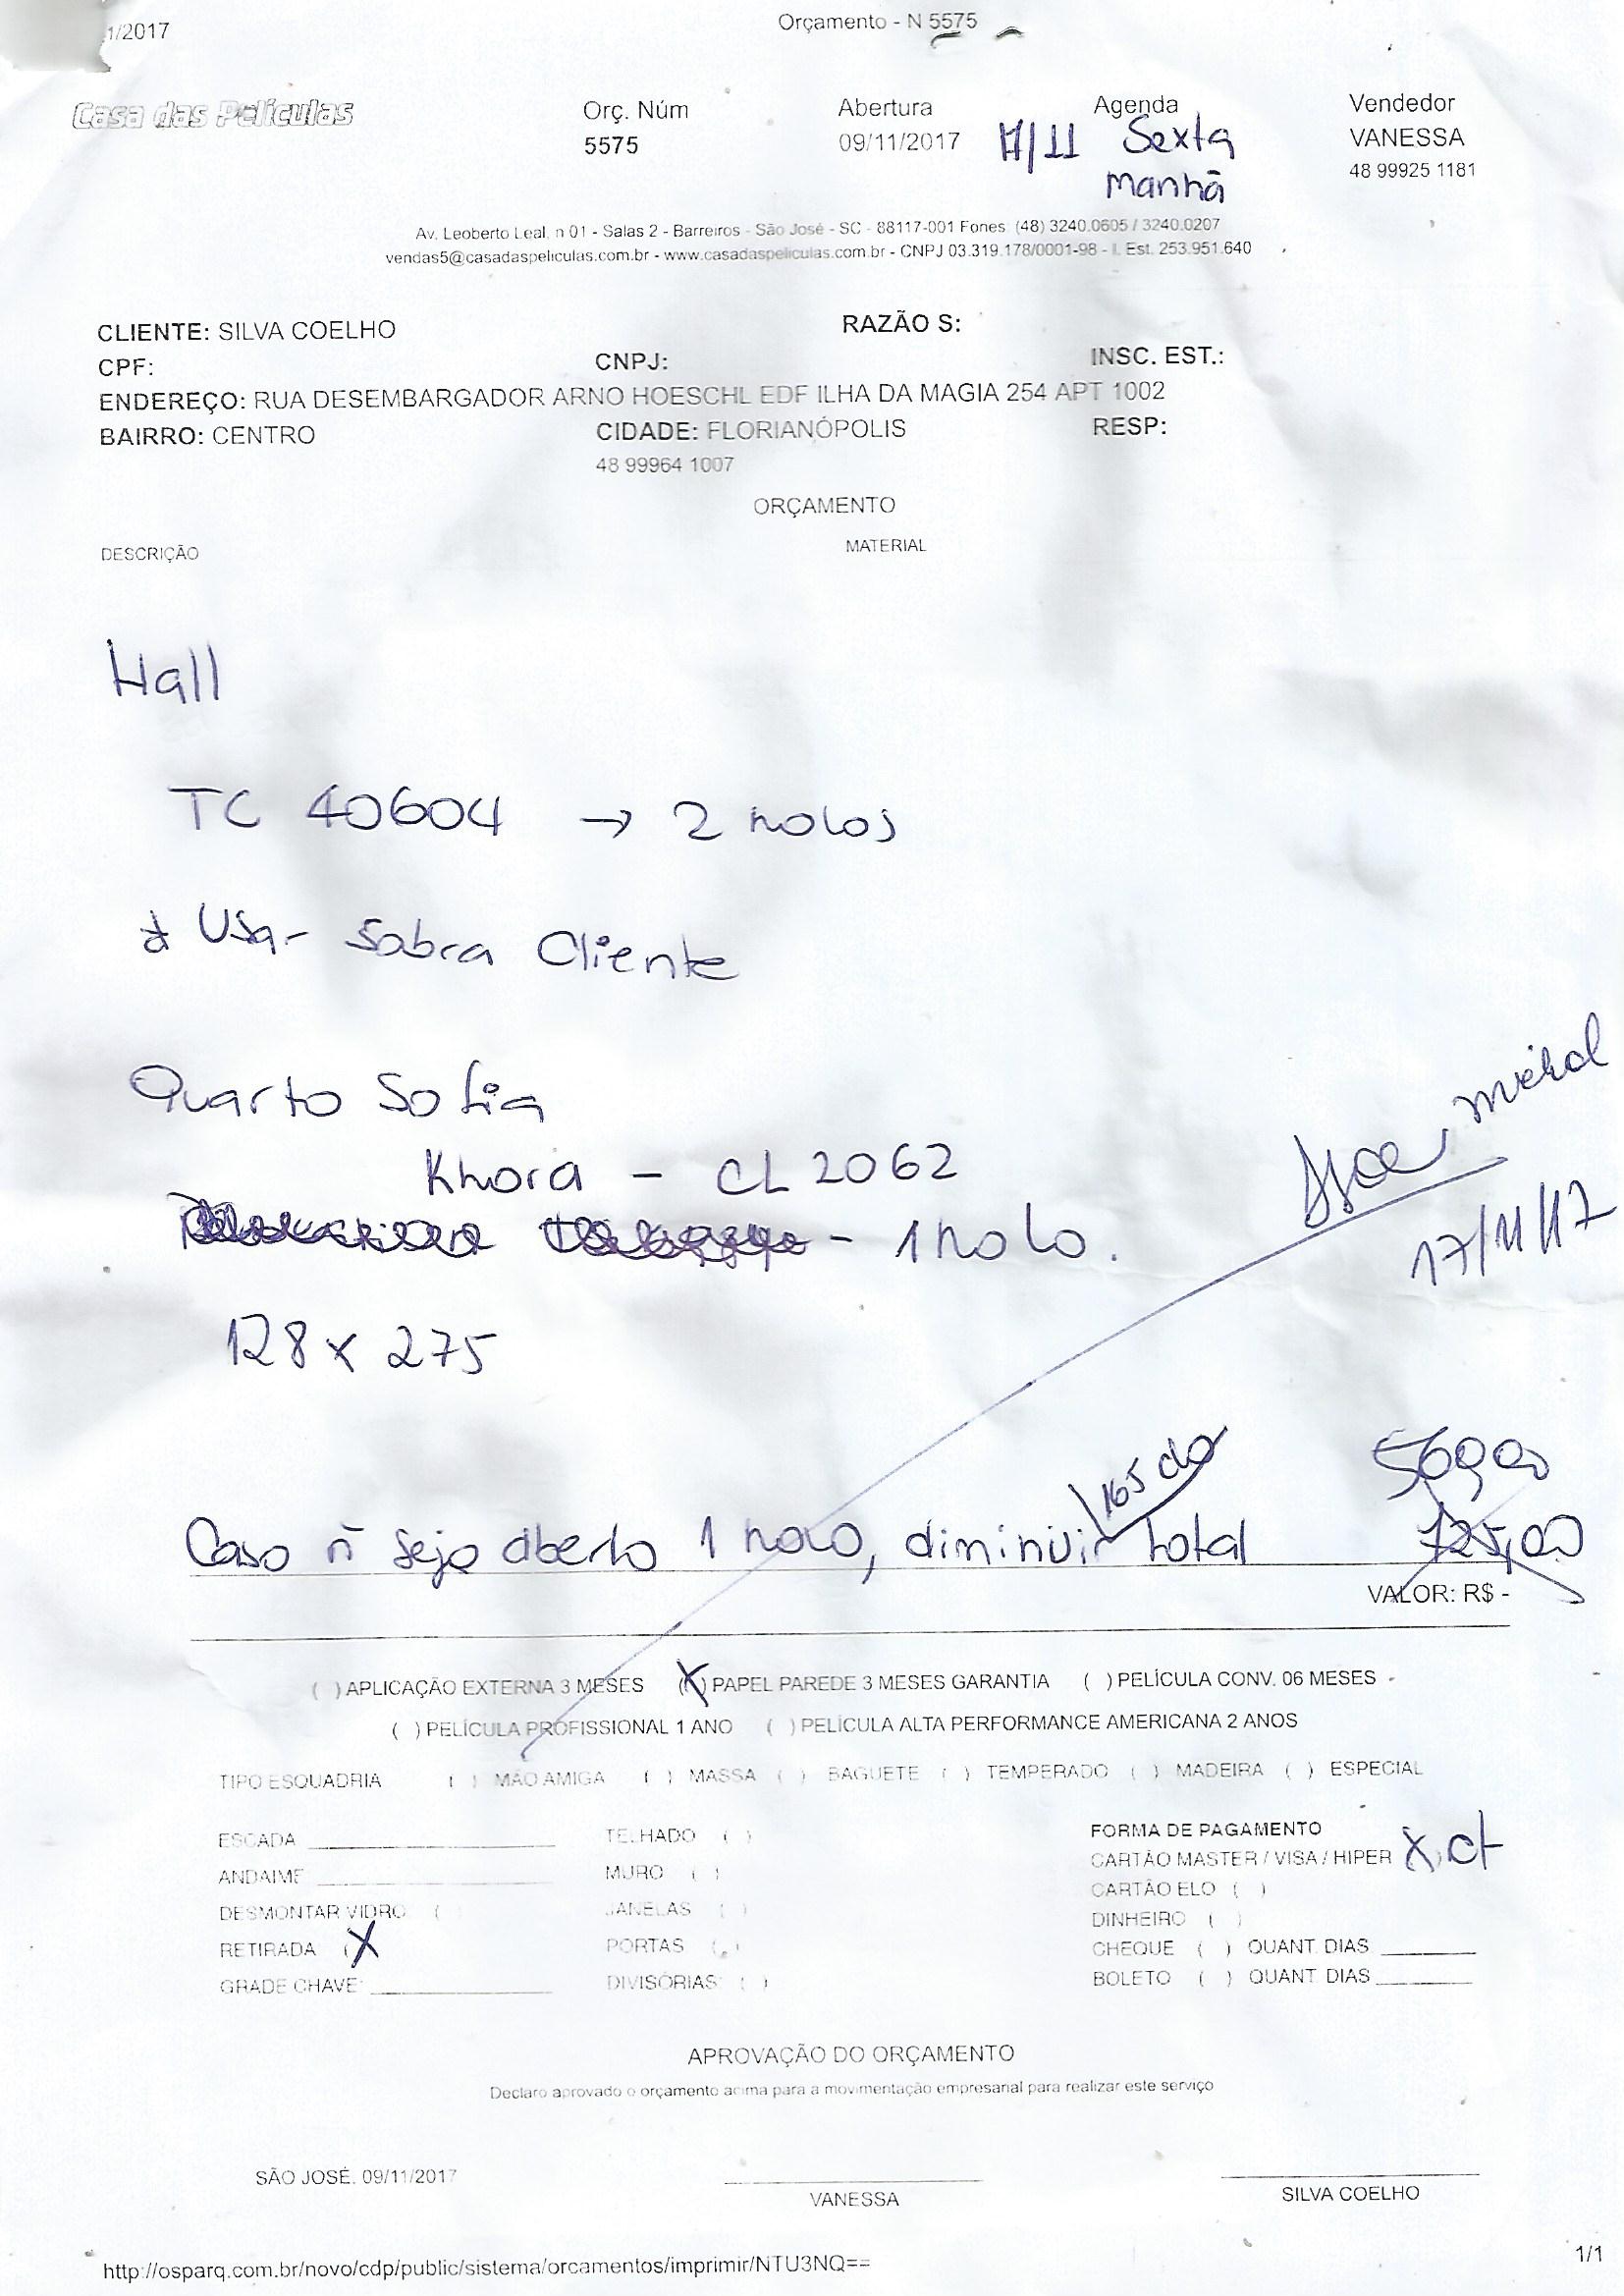 1/2017
Orçamento - N 5575
Casa das Películas
Orç. Núm
5575
Abertura
09/11/2017
Agenda
17/11 Sexta
Manhã
Vendedor
VANESSA
48 99925 1181
Av. Leoberto Leal, n 01 - Salas 2 - Barreiros - São José - SC - 88117-001 Fones: (48) 3240.0605 / 3240.0207
vendas5@casadaspeliculas.com.br - www.casadaspeliculas.com.br - CNPJ 03.319.178/0001-98 - I. Est. 253.951.640
CLIENTE: SILVA COELHO
RAZÃO S:
CPF:
CNPJ:
INSC. EST.:
ENDEREÇO: RUA DESEMBARGADOR ARNO HOESCHL EDF ILHA DA MAGIA 254 APT 1002
BAIRRO: CENTRO
CIDADE: FLORIANÓPOLIS
RESP:
48 99964 1007
ORÇAMENTO
DESCRIÇÃO
MATERIAL
Hall
TC 40604 → 2 rolos
* Usar Sobra Cliente
Quarto Sofia
Khora - CL 2062
- 1 rolo.
17/11/17
128 x 275
569,00
165 do
Caso ñ seja aberto 1 rolo, diminuir total
725,00
VALOR: R$ -
( ) APLICAÇÃO EXTERNA 3 MESES (X) PAPEL PAREDE 3 MESES GARANTIA ( ) PELÍCULA CONV. 06 MESES -
( ) PELÍCULA PROFISSIONAL 1 ANO ( ) PELÍCULA ALTA PERFORMANCE AMERICANA 2 ANOS
TIPO ESQUADRIA ( ) MÃO AMIGA ( ) MASSA ( ) BAGUETE ( ) TEMPERADO ( ) MADEIRA ( ) ESPECIAL
ESCADA
ANDAIME
DESMONTAR VIDRO ( )
RETIRADA (X)
GRADE CHAVE:
TELHADO ( )
MURO ( )
JANELAS ( )
PORTAS ( )
DIVISÓRIAS: ( )
FORMA DE PAGAMENTO
CARTÃO MASTER / VISA / HIPER (X) ct
CARTÃO ELO ( )
DINHEIRO ( )
CHEQUE ( ) QUANT. DIAS
BOLETO ( ) QUANT. DIAS
APROVAÇÃO DO ORÇAMENTO
Declaro aprovado o orçamento acima para a movimentação empresarial para realizar este serviço
SÃO JOSÉ, 09/11/2017
VANESSA
SILVA COELHO
http://osparq.com.br/novo/cdp/public/sistema/orcamentos/imprimir/NTU3NQ==
1/1